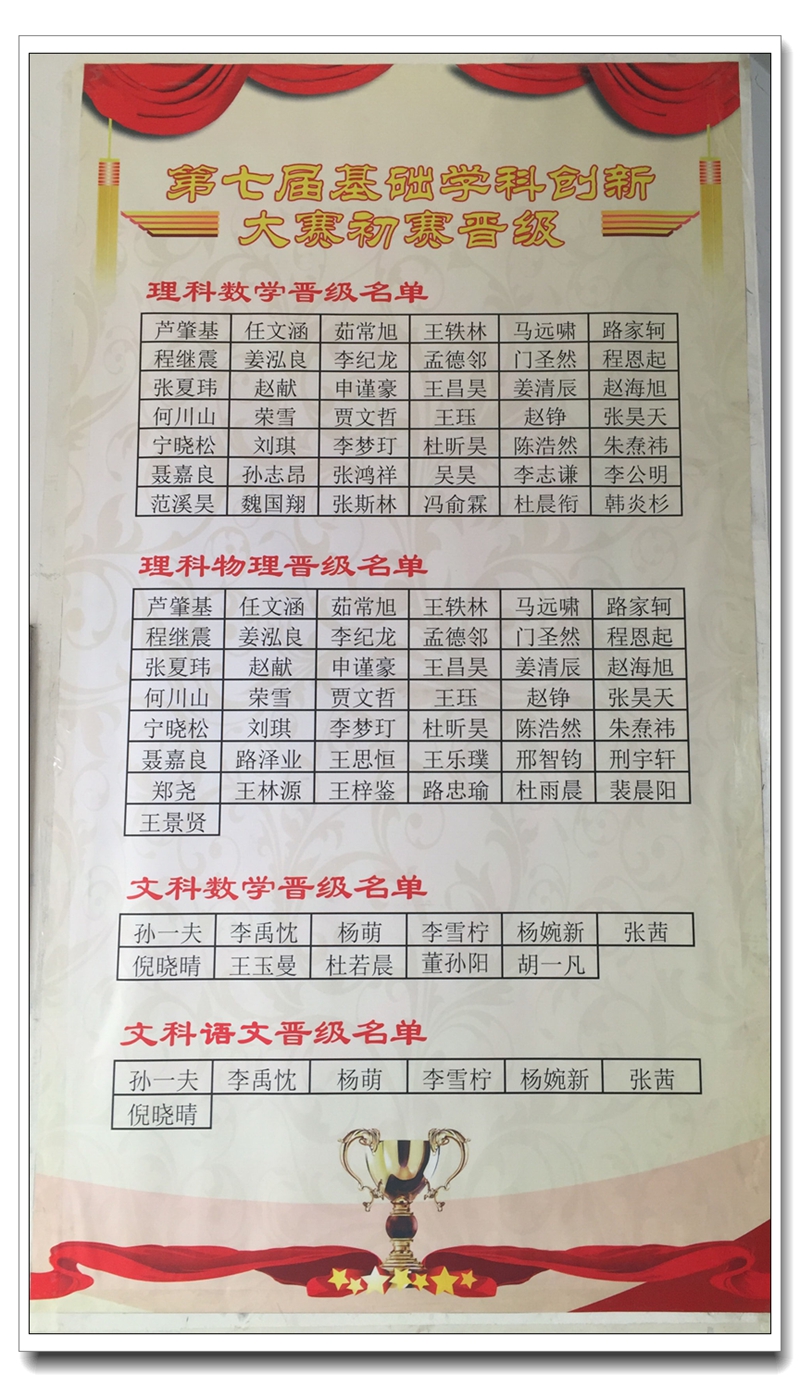 第七届基础学科创新
大赛初赛晋级
理科数学晋级名单
芦肇基 任文涵 茹常旭 王轶林 马远啸 路家轲
程继震 姜泓良 李纪龙 孟德邻 门圣然 程恩起
张夏玮 赵献 申谨豪 王昌昊 姜清辰 赵海旭
何川山 荣雪 贾文哲 王珏 赵铮 张昊天
宁晓松 刘琪 李梦玎 杜昕昊 陈浩然 朱焘祎
聂嘉良 孙志昂 张鸿祥 吴昊 李志谦 李公明
范溪昊 魏国翔 张斯林 冯俞霖 杜晨衔 韩炎杉
理科物理晋级名单
芦肇基 任文涵 茹常旭 王轶林 马远啸 路家轲
程继震 姜泓良 李纪龙 孟德邻 门圣然 程恩起
张夏玮 赵献 申谨豪 王昌昊 姜清辰 赵海旭
何川山 荣雪 贾文哲 王珏 赵铮 张昊天
宁晓松 刘琪 李梦玎 杜昕昊 陈浩然 朱焘祎
聂嘉良 路泽业 王思恒 王乐璞 邢智钧 刑宇轩
郑尧 王林源 王梓鉴 路忠瑜 杜雨晨 裴晨阳
王景贤
文科数学晋级名单
孙一夫 李禹忱 杨萌 李雪柠 杨婉新 张茜
倪晓晴 王玉曼 杜若晨 董孙阳 胡一凡
文科语文晋级名单
孙一夫 李禹忱 杨萌 李雪柠 杨婉新 张茜
倪晓晴